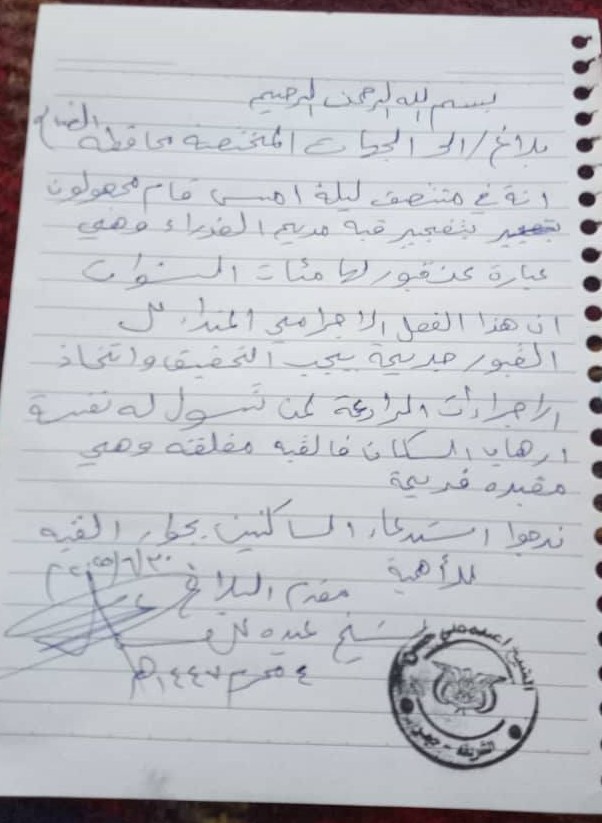 بسم الله الرحمن الرحيم
بلاغ/الى الجهات المختصة محافظة الضالع
انة في منتصف ليلة امس قام مجهولون
بتفجير قبة مريم العذراء وهي
عبارة عن قبور لها مئات السنوات
ان هذا الفعل الاجرامي
القبور جريمة يجب التحقيق واتخاذ
الاجراءات الرادعة لمن تسول له نفسة
ارهاب السكان فالقبه مغلقه وهي
مقبره قديمة
نرجوا استدعاء الساكنين بجوار القبه
للأهمية
٢٠٢٥/٦/٣٠
مقدم البلاغ
الشيخ عبده علي
٤ محرم ١٤٤٧ه
الشيخ / عبده علي حسن